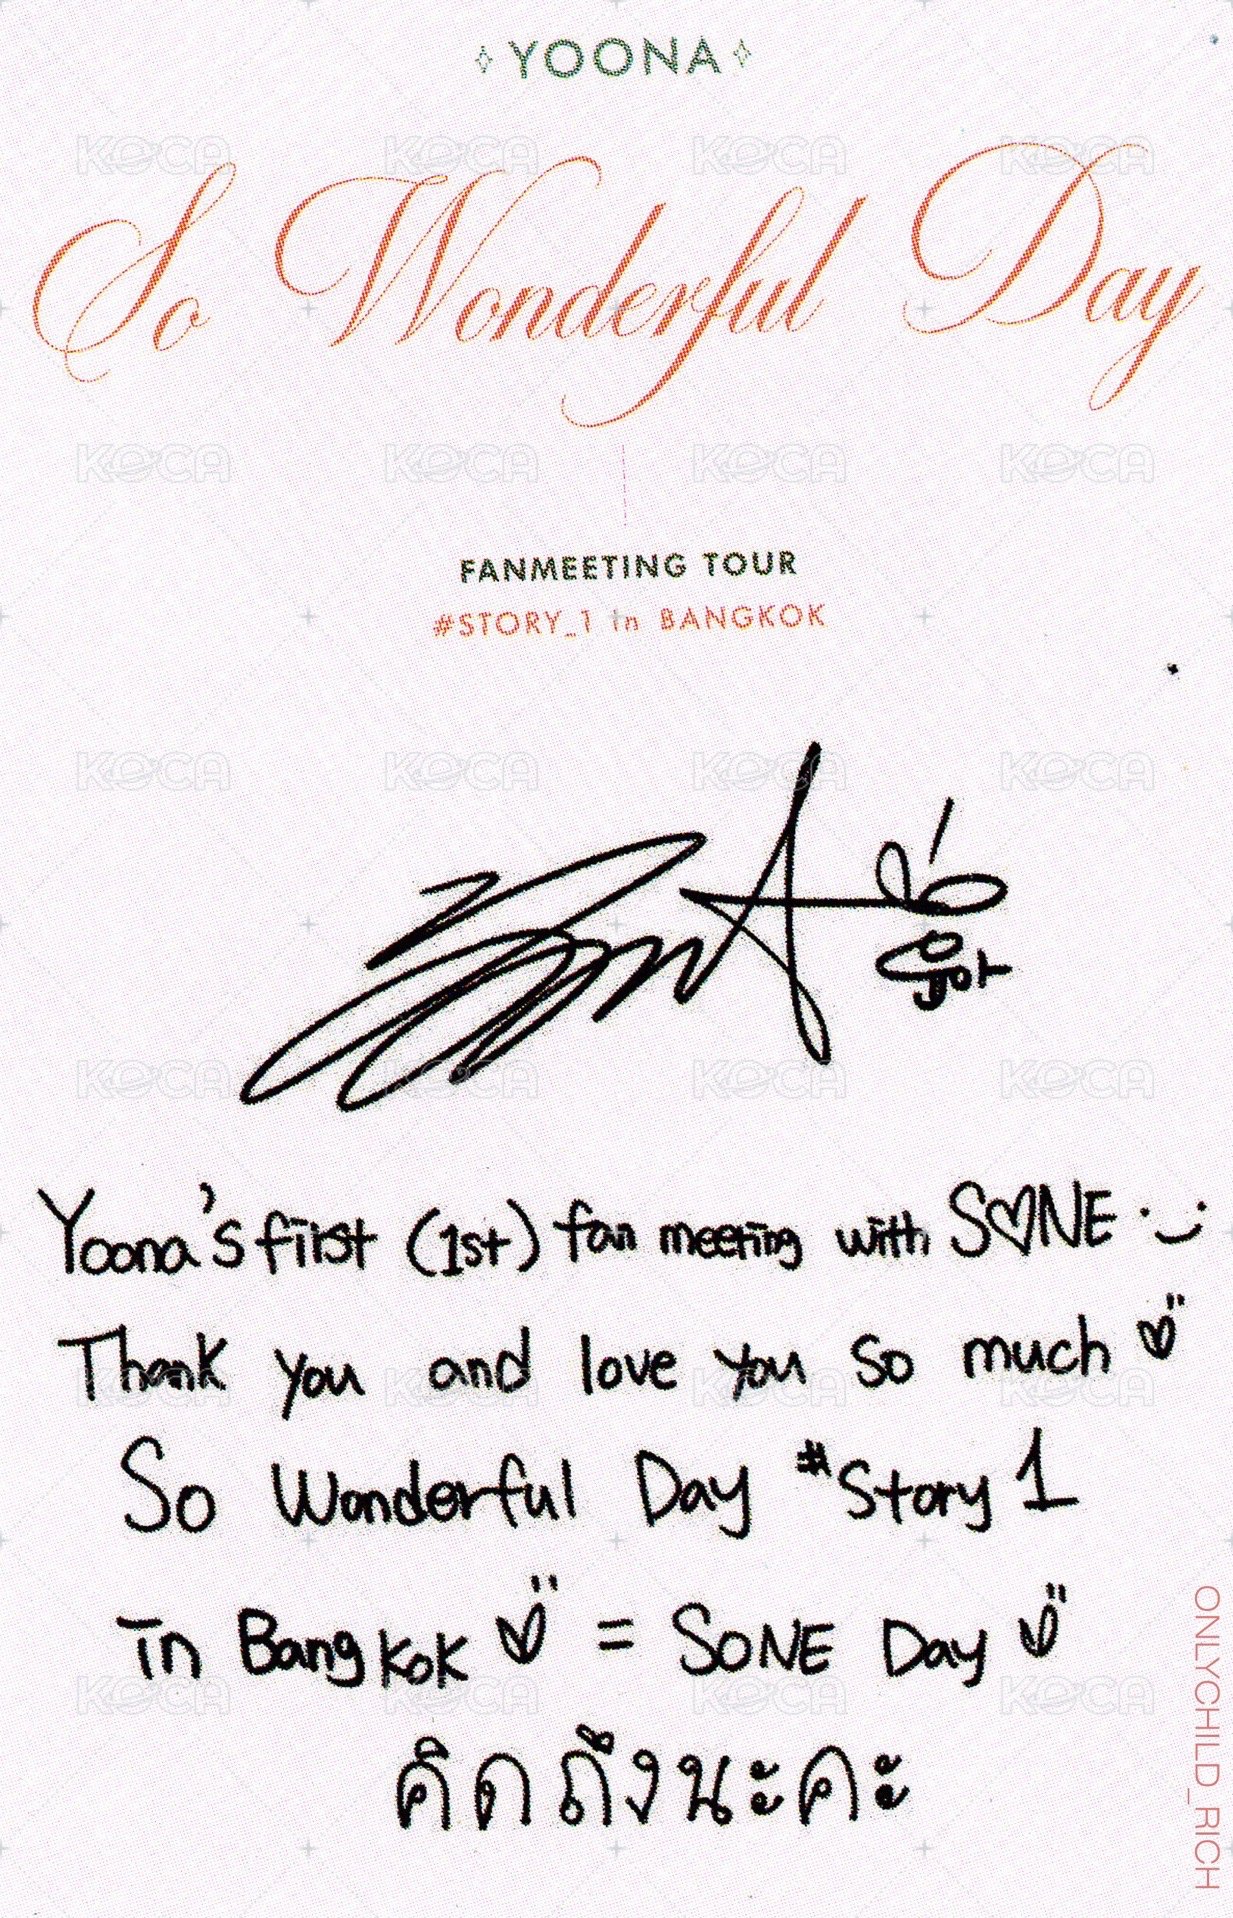 YOONA
So Wonderful Day
FANMEETING TOUR
#STORY_1 in BANGKOK
윤아
Yoona's first (1st) fan meeting with S♡NE
Thank you and love you so much ♡
So Wonderful Day #Story 1
in Bangkok ♡ = SONE Day ♡
คิดถึงนะคะ
ONLYCHILD_RICH
KOCA